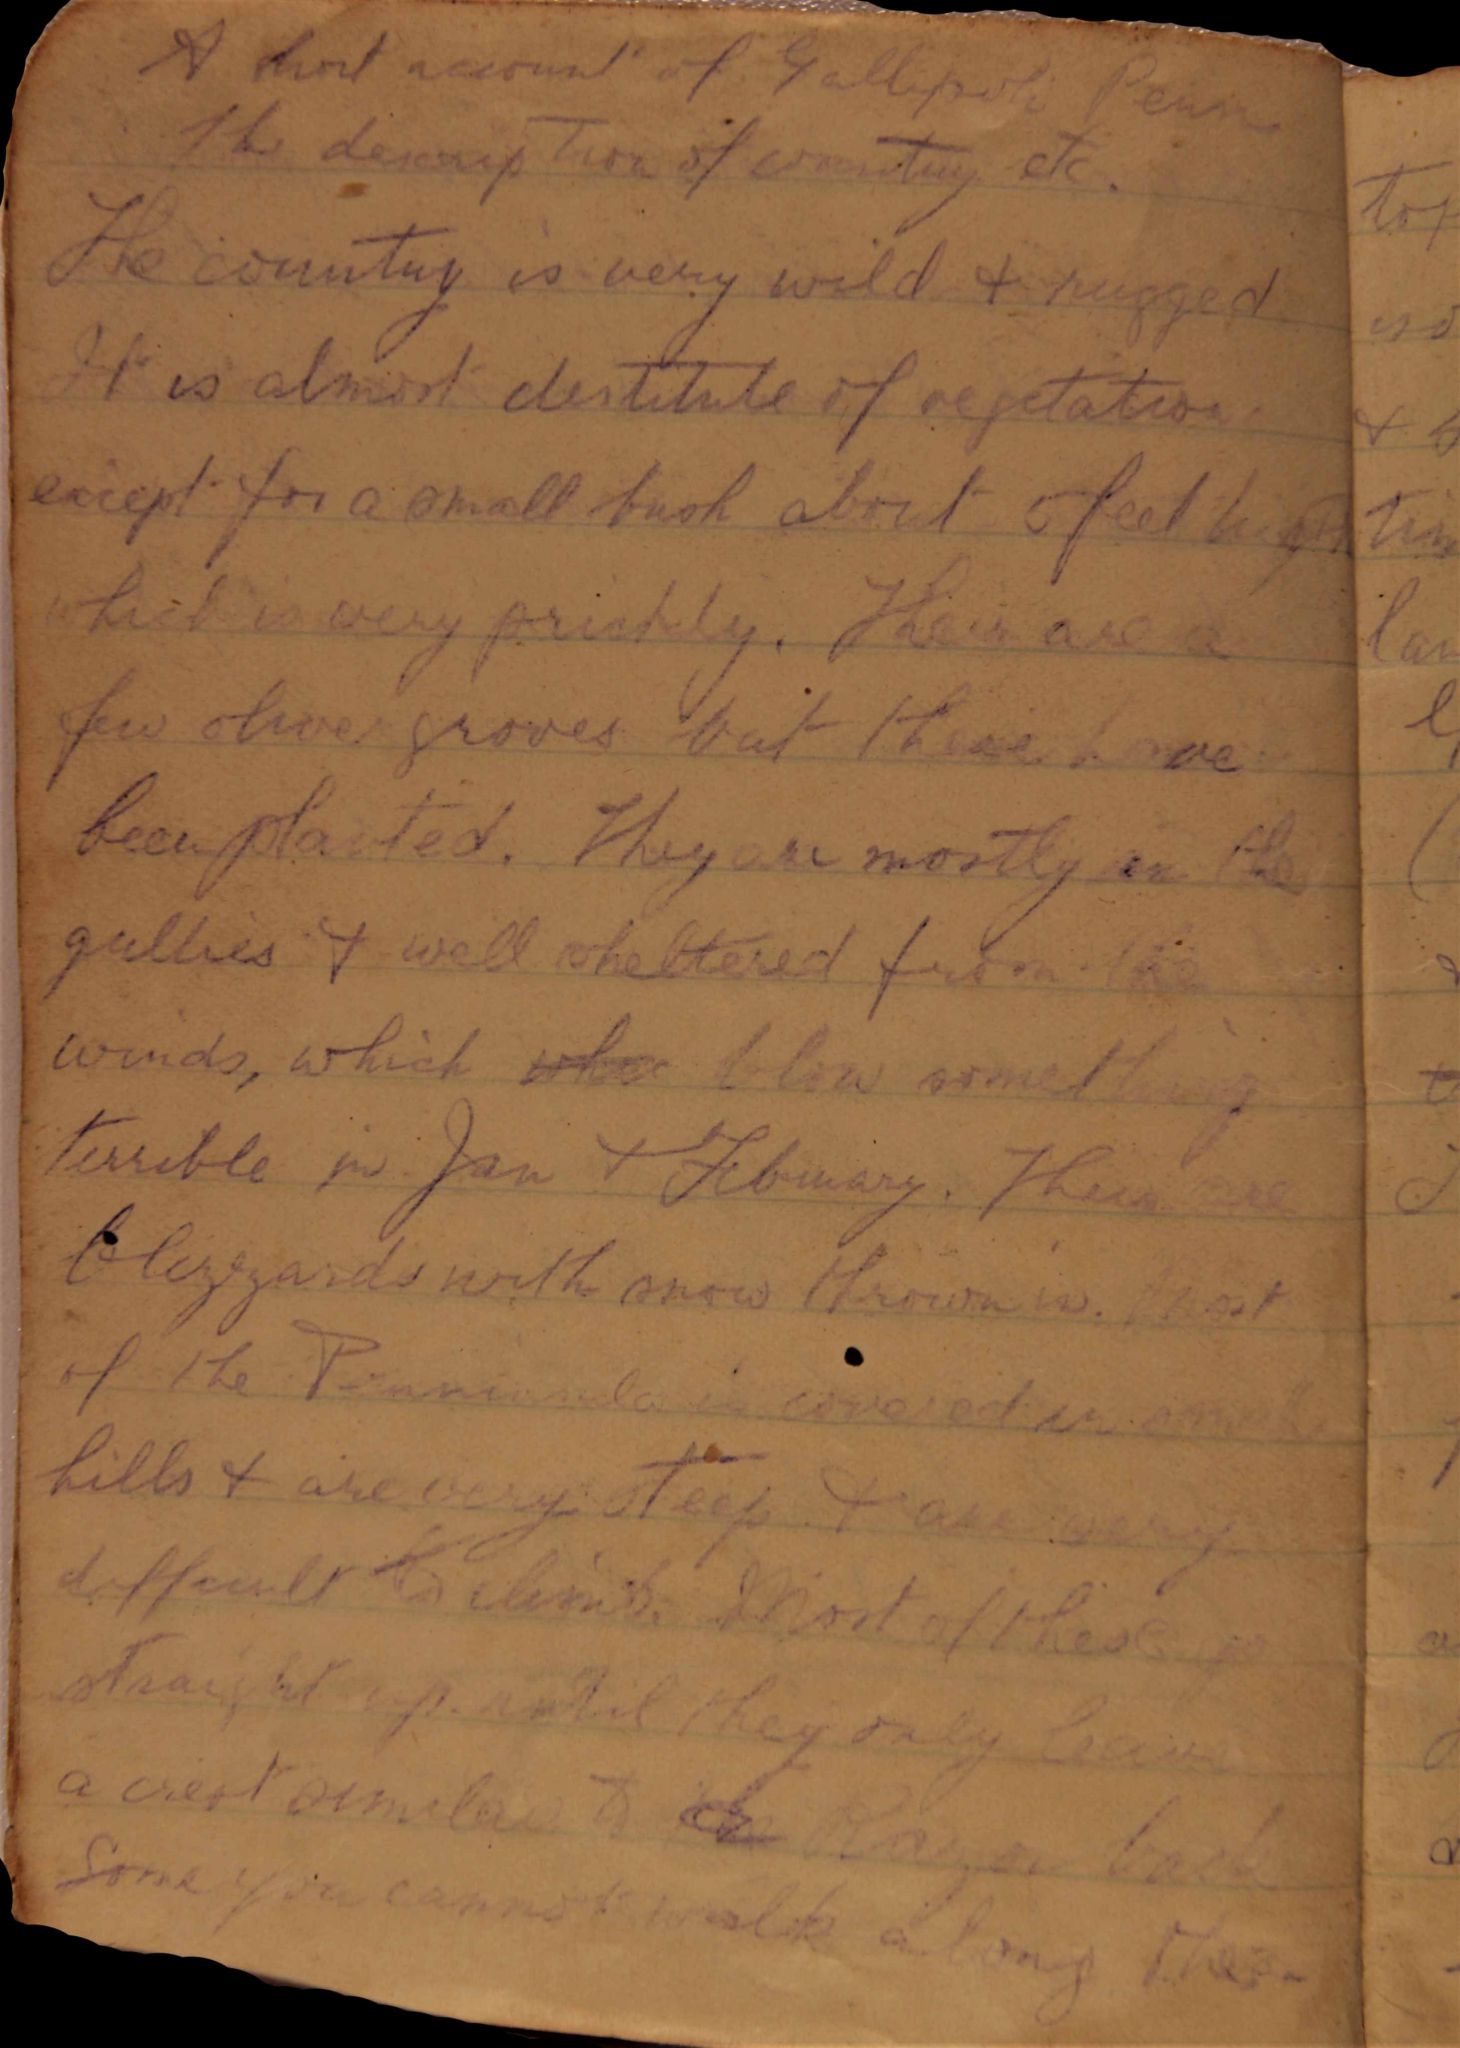 A short account of Gallipoli Penn
The description of country etc.
The country is very wild & rugged
It is almost destitute of vegetation
except for a small bush about feet high
which is very prickly. Their are a
few olive groves but these have
been planted. They are mostly in the
gullies & well sheltered from the
winds, which whe blow something
terrible in Jan & February. Their are
blizzards with snow thrown in. Most
of the Penninsula is covered in small
hills & are very steep & are very
difficult to climb. Most of these go
straight up until they only leave
a crest similar to the Razor back
Some you cannot walk along the
top
& s
tim
lan